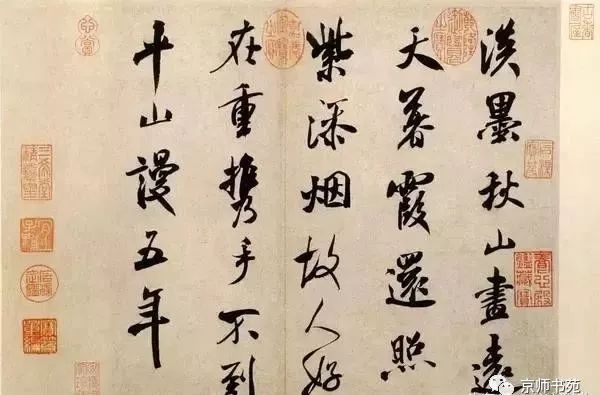 淡墨秋山畫遠
天暮霞還照
紫添烟故人好
在重攜手不到
平山謾五年
京师书苑